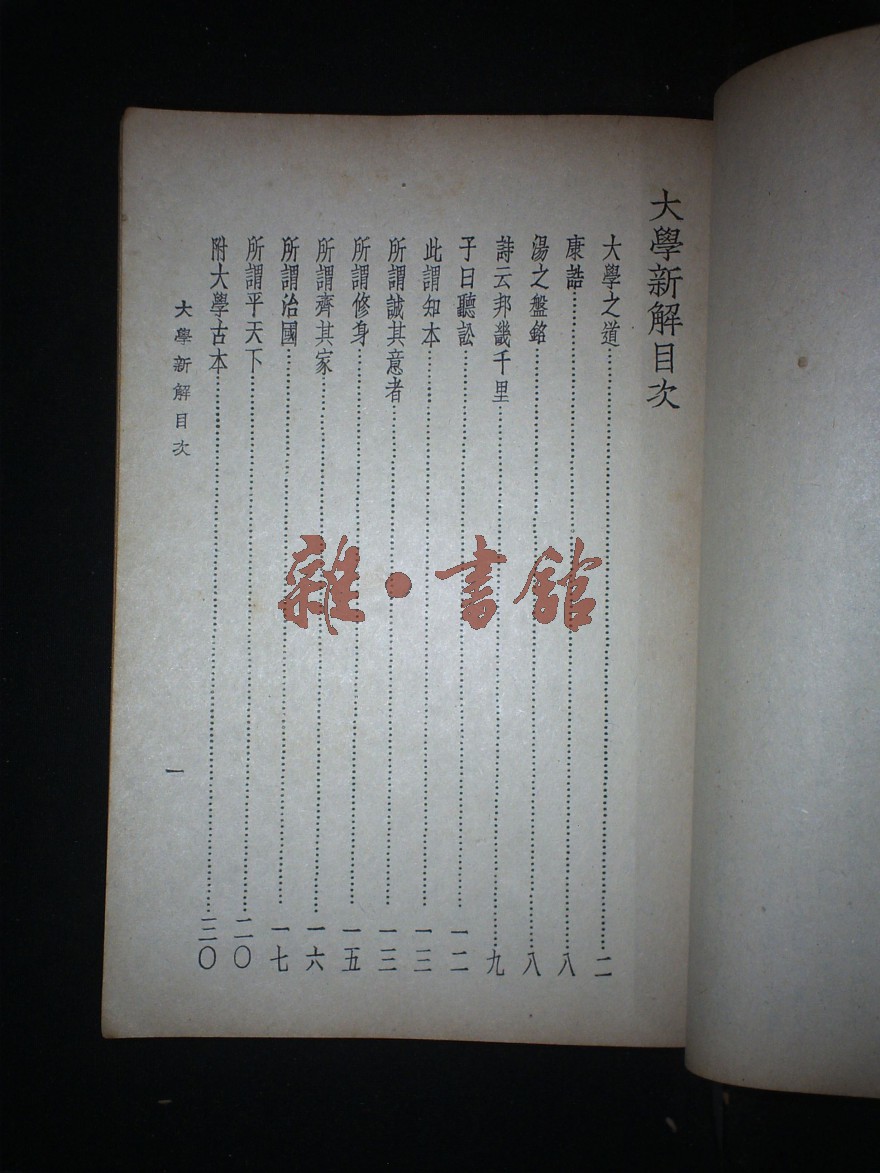 大學新解目次
大學之道……二
康誥……八
湯之盤銘……八
詩云邦畿千里……九
子曰聽訟……一二
此謂知本……一三
所謂誠其意者……一三
所謂修身……一五
所謂齊其家……一六
所謂治國……一七
所謂平天下……二〇
附大學古本……三〇
大學新解目次
一
雜·書館